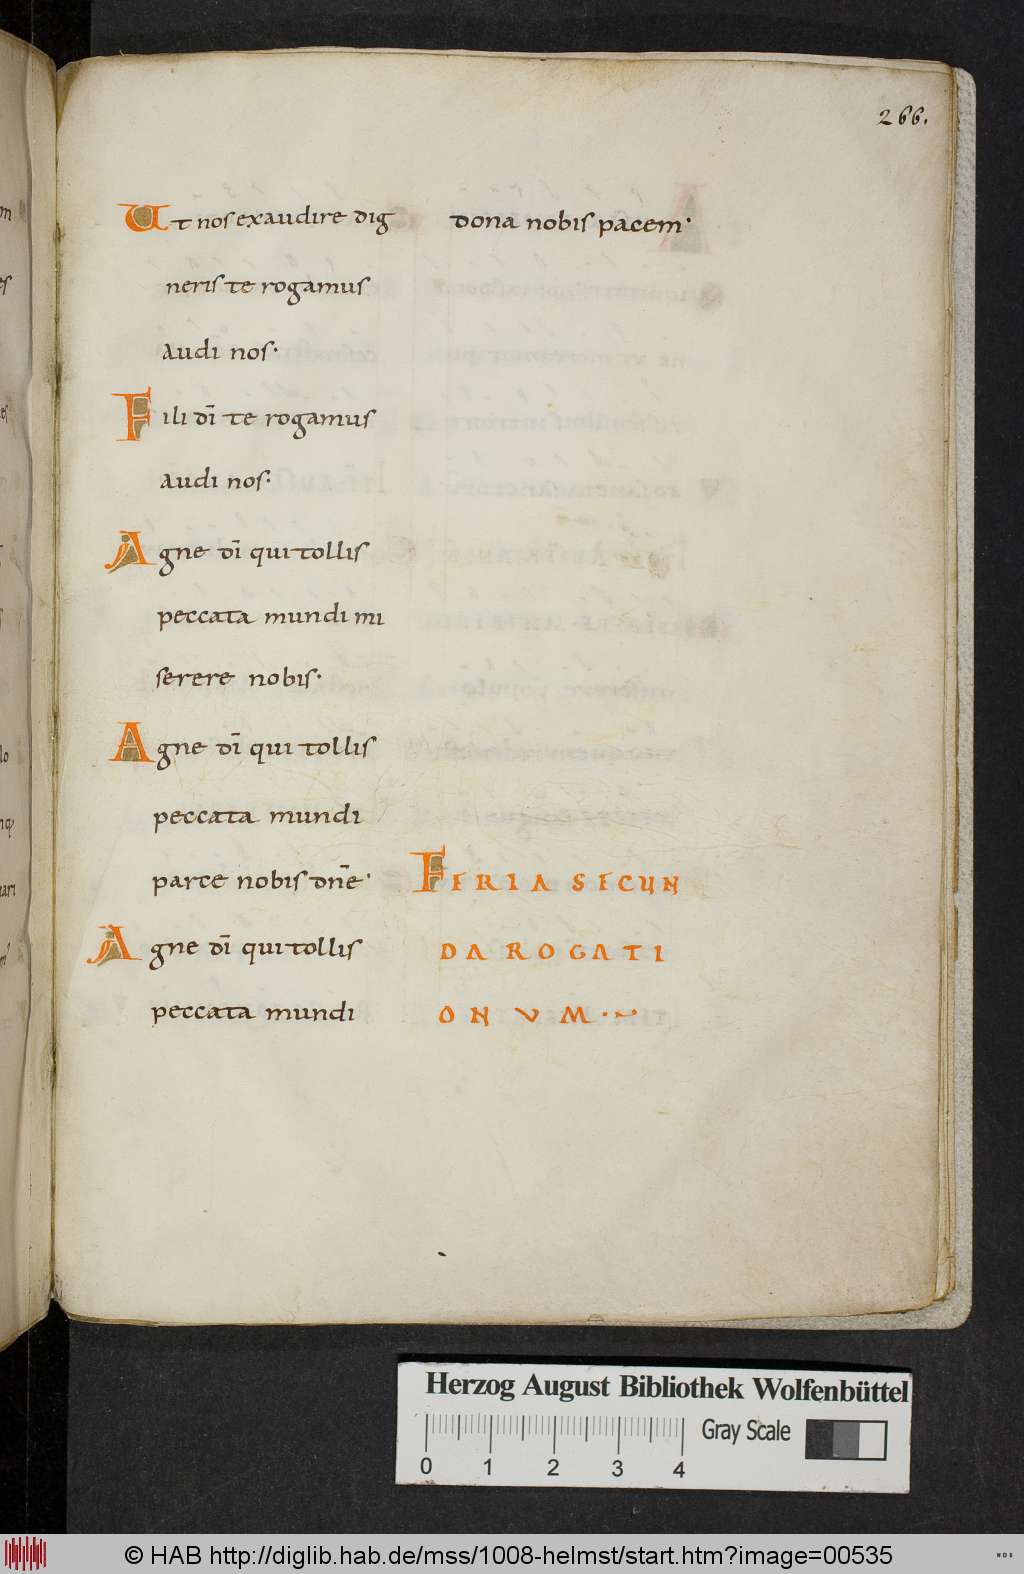 266.
Ut nos exaudire dig
neris te rogamus
audi nos·
Fili dī te rogamus
audi nos·
Agne dī qui tollis
peccata mundi mi
serere nobis·
Agne dī qui tollis
peccata mundi
parce nobis dn̄e·
Agne dī qui tollis
peccata mundi
dona nobis pacem·
FERIA SECUN
DA ROGATI
ONVM·~
Herzog August Bibliothek Wolfenbüttel
Gray Scale
0 1 2 3 4
© HAB http://diglib.hab.de/mss/1008-helmst/start.htm?image=00535